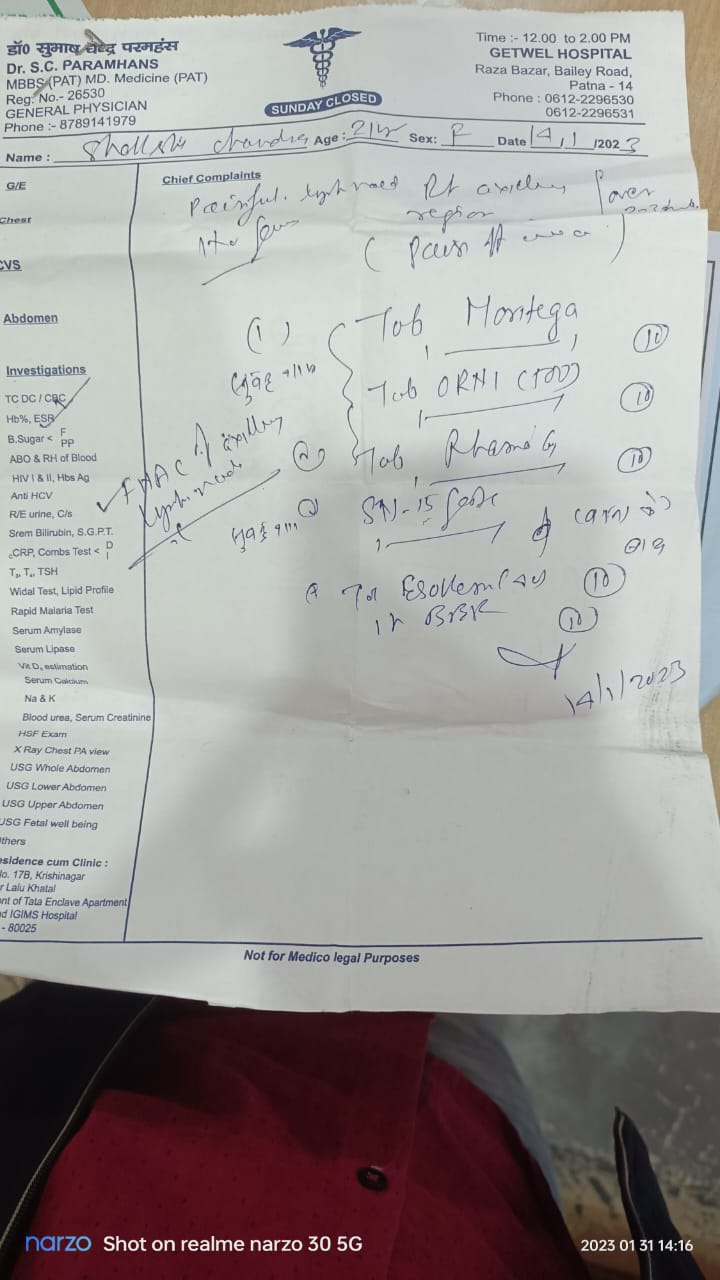 डॉ० सुभाष चन्द्र परमहंस
Dr. S.C. PARAMHANS
MBBS (PAT) MD. Medicine (PAT)
Reg. No.- 26530
GENERAL PHYSICIAN
Phone :- 8789141979
SUNDAY CLOSED
Time :- 12.00 to 2.00 PM
GETWEL HOSPITAL
Raza Bazar, Bailey Road,
Patna - 14
Phone : 0612-2296530
0612-2296531
Name : Chandra Age : 21 Sex: Date 14/1/2023
G/E
Chest
CVS
Abdomen
Investigations
TC DC / CBC
Hb%, ESR
B.Sugar < F PP
ABO & RH of Blood
HIV I & II, Hbs Ag
Anti HCV
R/E urine, C/s
Srem Bilirubin, S.G.P.T.
CRP, Combs Test < D I
T₃, T₄, TSH
Widal Test, Lipid Profile
Rapid Malaria Test
Serum Amylase
Serum Lipase
Vit D, estimation
Serum Calcium
Na & K
Blood urea, Serum Creatinine
HSF Exam
X Ray Chest PA view
USG Whole Abdomen
USG Lower Abdomen
USG Upper Abdomen
USG Fetal well being
thers
esidence cum Clinic :
lo. 17B, Krishinagar
r Lalu Khatal
nt of Tata Enclave Apartment
d IGIMS Hospital
- 80025
Chief Complaints
Painful Rt axillary
region
(Pain
(1)
Tab Montega (10)
Tab ORNI (500) (10)
Tab (10)
FNAC of axillary
lymph node
SN-15
(10)
(10)
14/1/2023
Not for Medico legal Purposes
narzo Shot on realme narzo 30 5G
2023 01 31 14:16